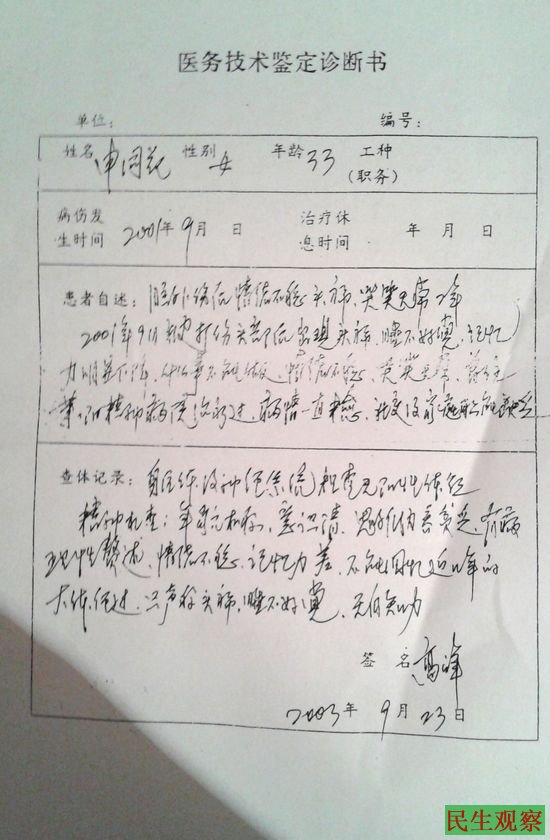 医务技术鉴定诊断书
单位： 编号：
姓名 申国花 性别 女 年龄 33 工种（职务）
病伤发生时间 2001年9月 日 治疗休息时间 年 月 日
患者自述：脑外伤后情绪不稳头痛，哭笑无常2年
2001年9月被打伤头部后出现头痛，睡不好觉，记忆
力明显下降，什么事不能做，情绪不稳，哭笑无常，
精神病院治疗过，病情一直
查体记录：身体及神经系统检查见阳性体征
精神检查：年貌相称，意识清，思维内容贫乏，有病
理性赘述，情绪不稳，记忆力差，不能回忆近2年的
大体经过，只声称头痛，睡不好觉，无自知力
签名 高峰
2003年9月23日
民生观察